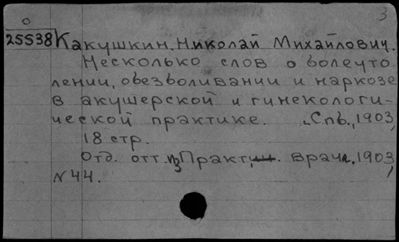 3
25538 Какушкин, Николай Михайлович.
Несколько слов о болеуто-
лении, обезволивании и наркозе
в акушерской и гинекологи-
ческой практике. Спб., 1903,
18 стр.
Отд. отт. из Практ. врач, 1903,
N 44.